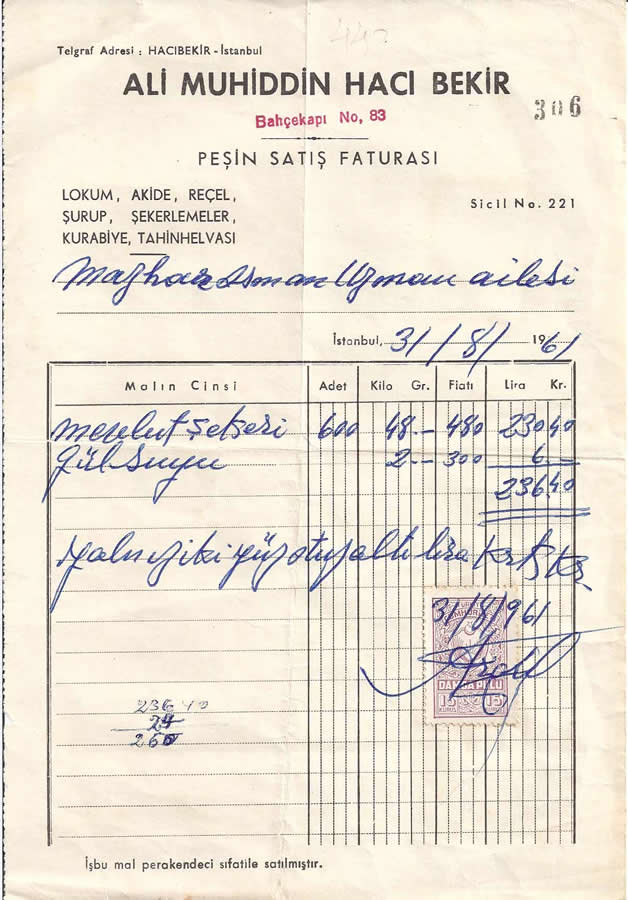 Telgraf Adresi : HACIBEKİR - İstanbul
ALİ MUHİDDİN HACI BEKİR
Bahçekapı No, 83
306
PEŞİN SATIŞ FATURASI
LOKUM, AKİDE, REÇEL,
ŞURUP, ŞEKERLEMELER,
KURABİYE, TAHİNHELVASI
Sicil No. 221
Mazhar Osman Uzman ailesi
İstanbul, 31/8/1961
Malın Cinsi Adet Kilo Gr. Fiatı Lira Kr.
Mevlut Şekeri 600 48.- 480 230 40
Gül Suyu 2.- 300 6.-
236 40
Yalnız iki yüz otuz altı lira kırk Krş
31/8/961
DAMGA PULU
15 15
KURUŞ
236 40
24
260
İşbu mal perakendeci sıfatile satılmıştır.